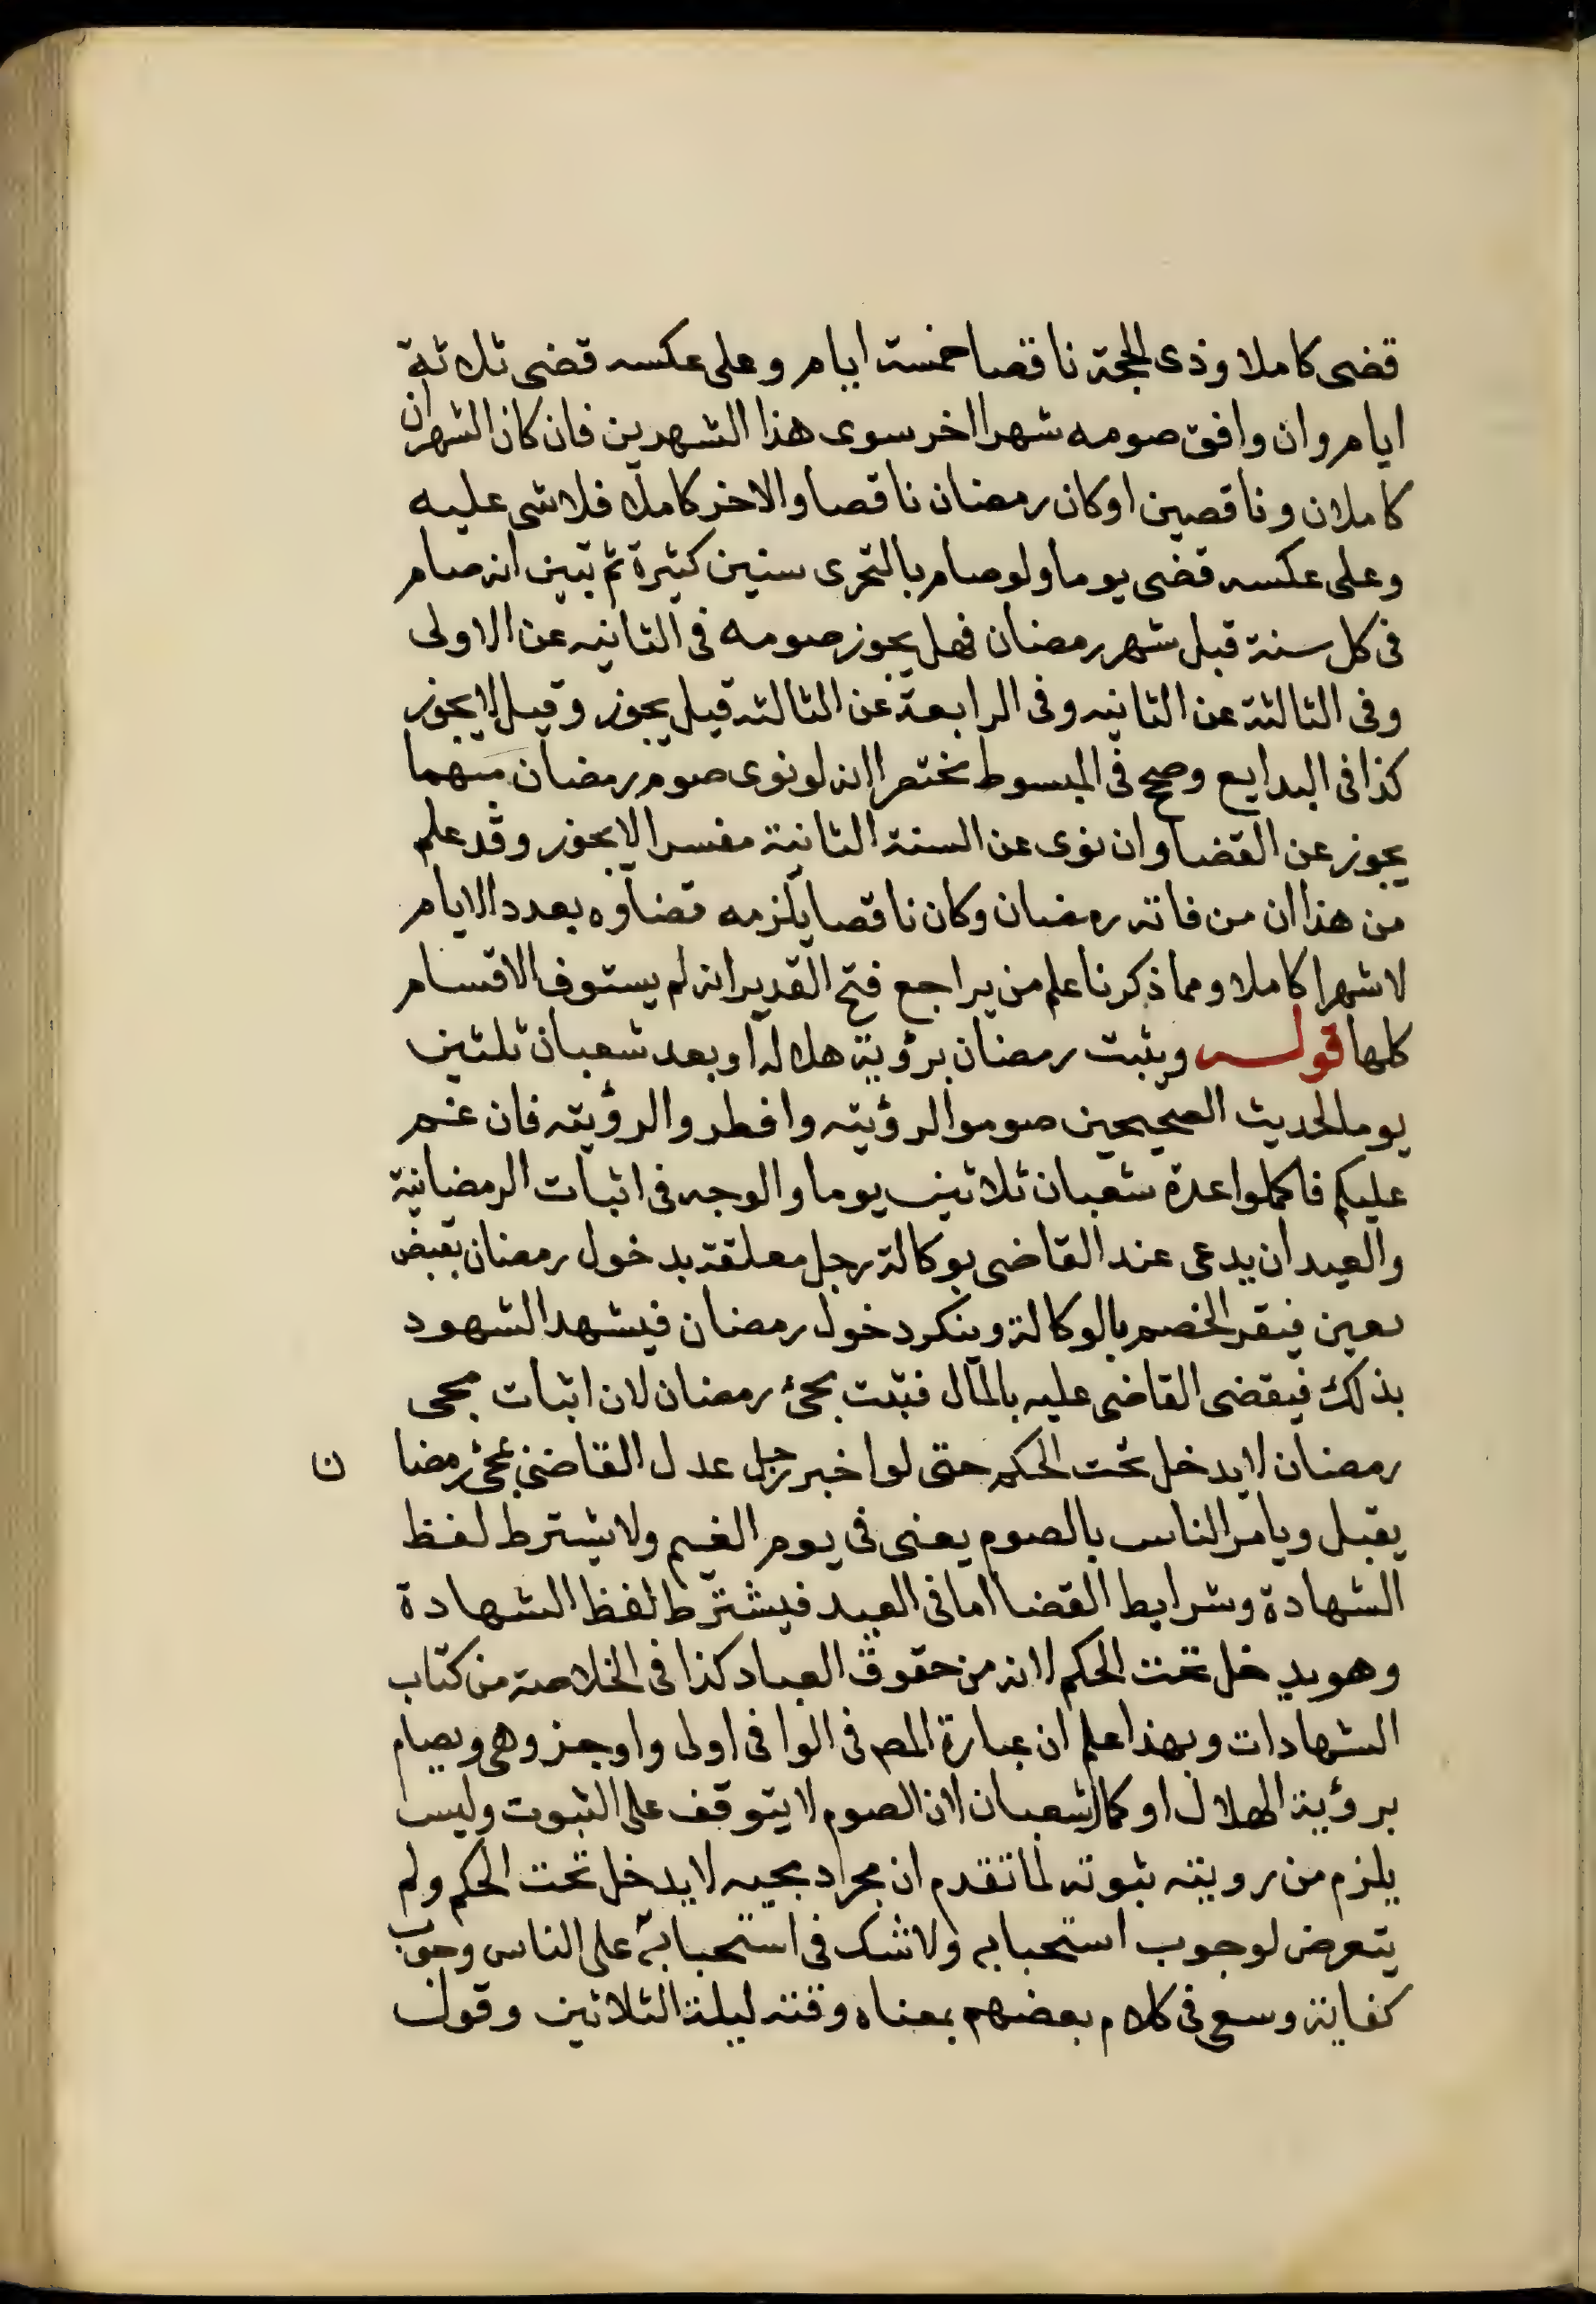 قضى كاملا وذى الحجة ناقصا خمسة ايام وعلى عكسه قضى ثلاثة
ايام وان وافق صومه شهرا اخر سوى هذا الشهرين فان كان الشهران
كاملان وناقصين اوكان رمضان ناقصا والاخر كاملا فلا شى عليه
وعلى عكسه قضى يوما ولو صام بالتحرى سنين كثيرة ثم تبين انه صام
فى كل سنة قبل شهر رمضان فهل يجوز صومه فى الثانيه عن الاولى
وفى الثالثة عن الثانيه وفى الرابعة عن الثالثه قيل يجوز وقيل لا يجوز
كذا فى البدايع وصحح فى المبسوط مختصرا انه لو نوى صوم رمضان مبهما
يجوز عن القضا وان نوى عن السنة الثانية مفسرا لا يجوز وقد علم
من هذا ان من فاته رمضان وكان ناقصا يلزمه قضاوه بعدد الايام
لا شهرا كاملا ومما ذكرنا علم من يراجع فتح القدير انه لم يستوف الاقسام
كلها قوله ويثبت رمضان برؤية هلاله او بعد شعبان ثلثين
يوما لحديث الصحيحين صوموا لرؤيته وافطروا لرؤيته فان غم
عليكم فاكملوا عدة شعبان ثلاثين يوما والوجه فى اثبات الرمضانية
والعيد ان يدعى عند القاضى بوكالة رجل معلقة بدخول رمضان بقبض
بعين فيقر الخصم بالوكالة وينكر دخول رمضان فيشهد الشهود
بذلك فيقضى القاضى عليه بالمال فثبت مجئ رمضان لان اثبات مجى
رمضان لا يدخل تحت الحكم حتى لو اخبر رجل عدل القاضى بمجئ رمضا ن
يقبل ويامر الناس بالصوم يعنى فى يوم الغيم ولا يشترط لفظ
الشهادة وشرايط القضا اما فى العيد فيشترط لفظ الشهادة
وهو يدخل تحت الحكم لانه من حقوق العباد كذا فى الخلاصة من كتاب
الشهادات وبهذا علم ان عبارة المص فى الوافى اولى واوجز وهى ويصام
برؤية الهلال او كمال شعبان لان الصوم لا يتوقف على الثبوت وليس
يلزم من رويته ثبوته لما تقدم ان مجراد مجيه لا يدخل تحت الحكم ولم
يتعرض لوجوب استحبابه ولا شك فى استحبابه على الناس وجوب
كفاية وسع فى كلام بعضهم بمعناه وقته ليلة الثلاثين وقول